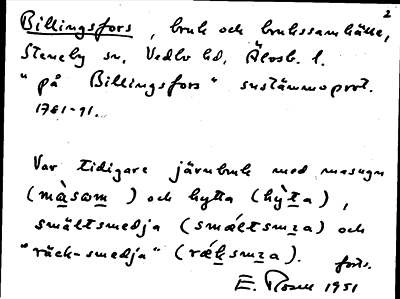 2
Billingsfors, bruk och brukssamhälle,
Steneby sn, Vedbo hd, Älvsb. l.
"på Billingsfors" sustämmoprot.
1761-91.
Var tidigare järnbruk med masugn
(màsəm) och hytta (hỳta),
smältsmedja (smæ̀ltsmɪa) och
"räck-smedja" (ræ̀ksmɪa).
forts.
E. Rosell 1951